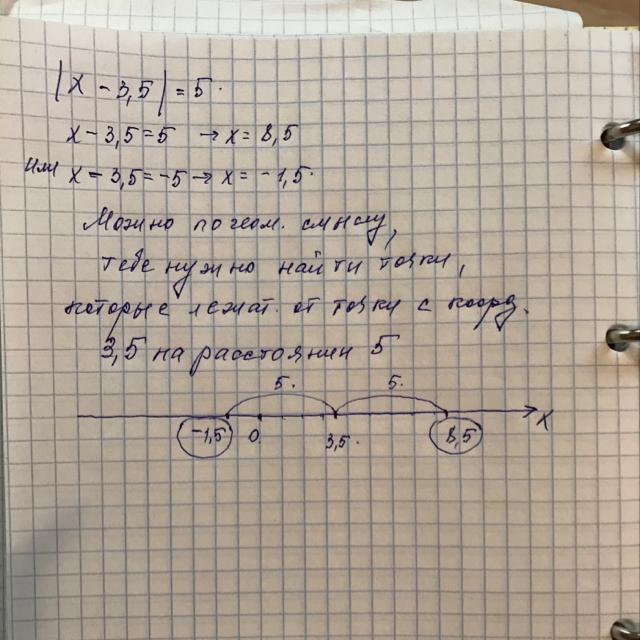 |x - 3,5| = 5.
x - 3,5 = 5 → x = 8,5
или x - 3,5 = -5 → x = -1,5.
Можно по геом. смыслу,
тебе нужно найти точки,
которые лежат от точки с коорд.
3,5 на расстоянии 5
5. 5.
-1,5 0 3,5. 8,5 x